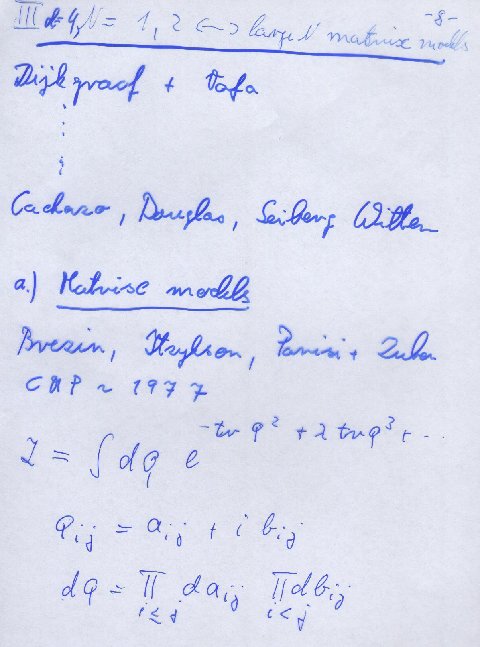 -8-
III d=4, N = 1, 2 <-> large N matrix models
Dijkgraaf + Vafa
⋮
Cachazo, Douglas, Seiberg Witten
a.) Matrix models
Brezin, Itzykson, Parisi + Zuber
CMP ~ 1977
Z = ∫ dφ e^{-tr φ² + λ tr φ³ + ...}
φ_{ij} = a_{ij} + i b_{ij}
dφ = ∏_{i≤j} da_{ij} ∏_{i<j} db_{ij}